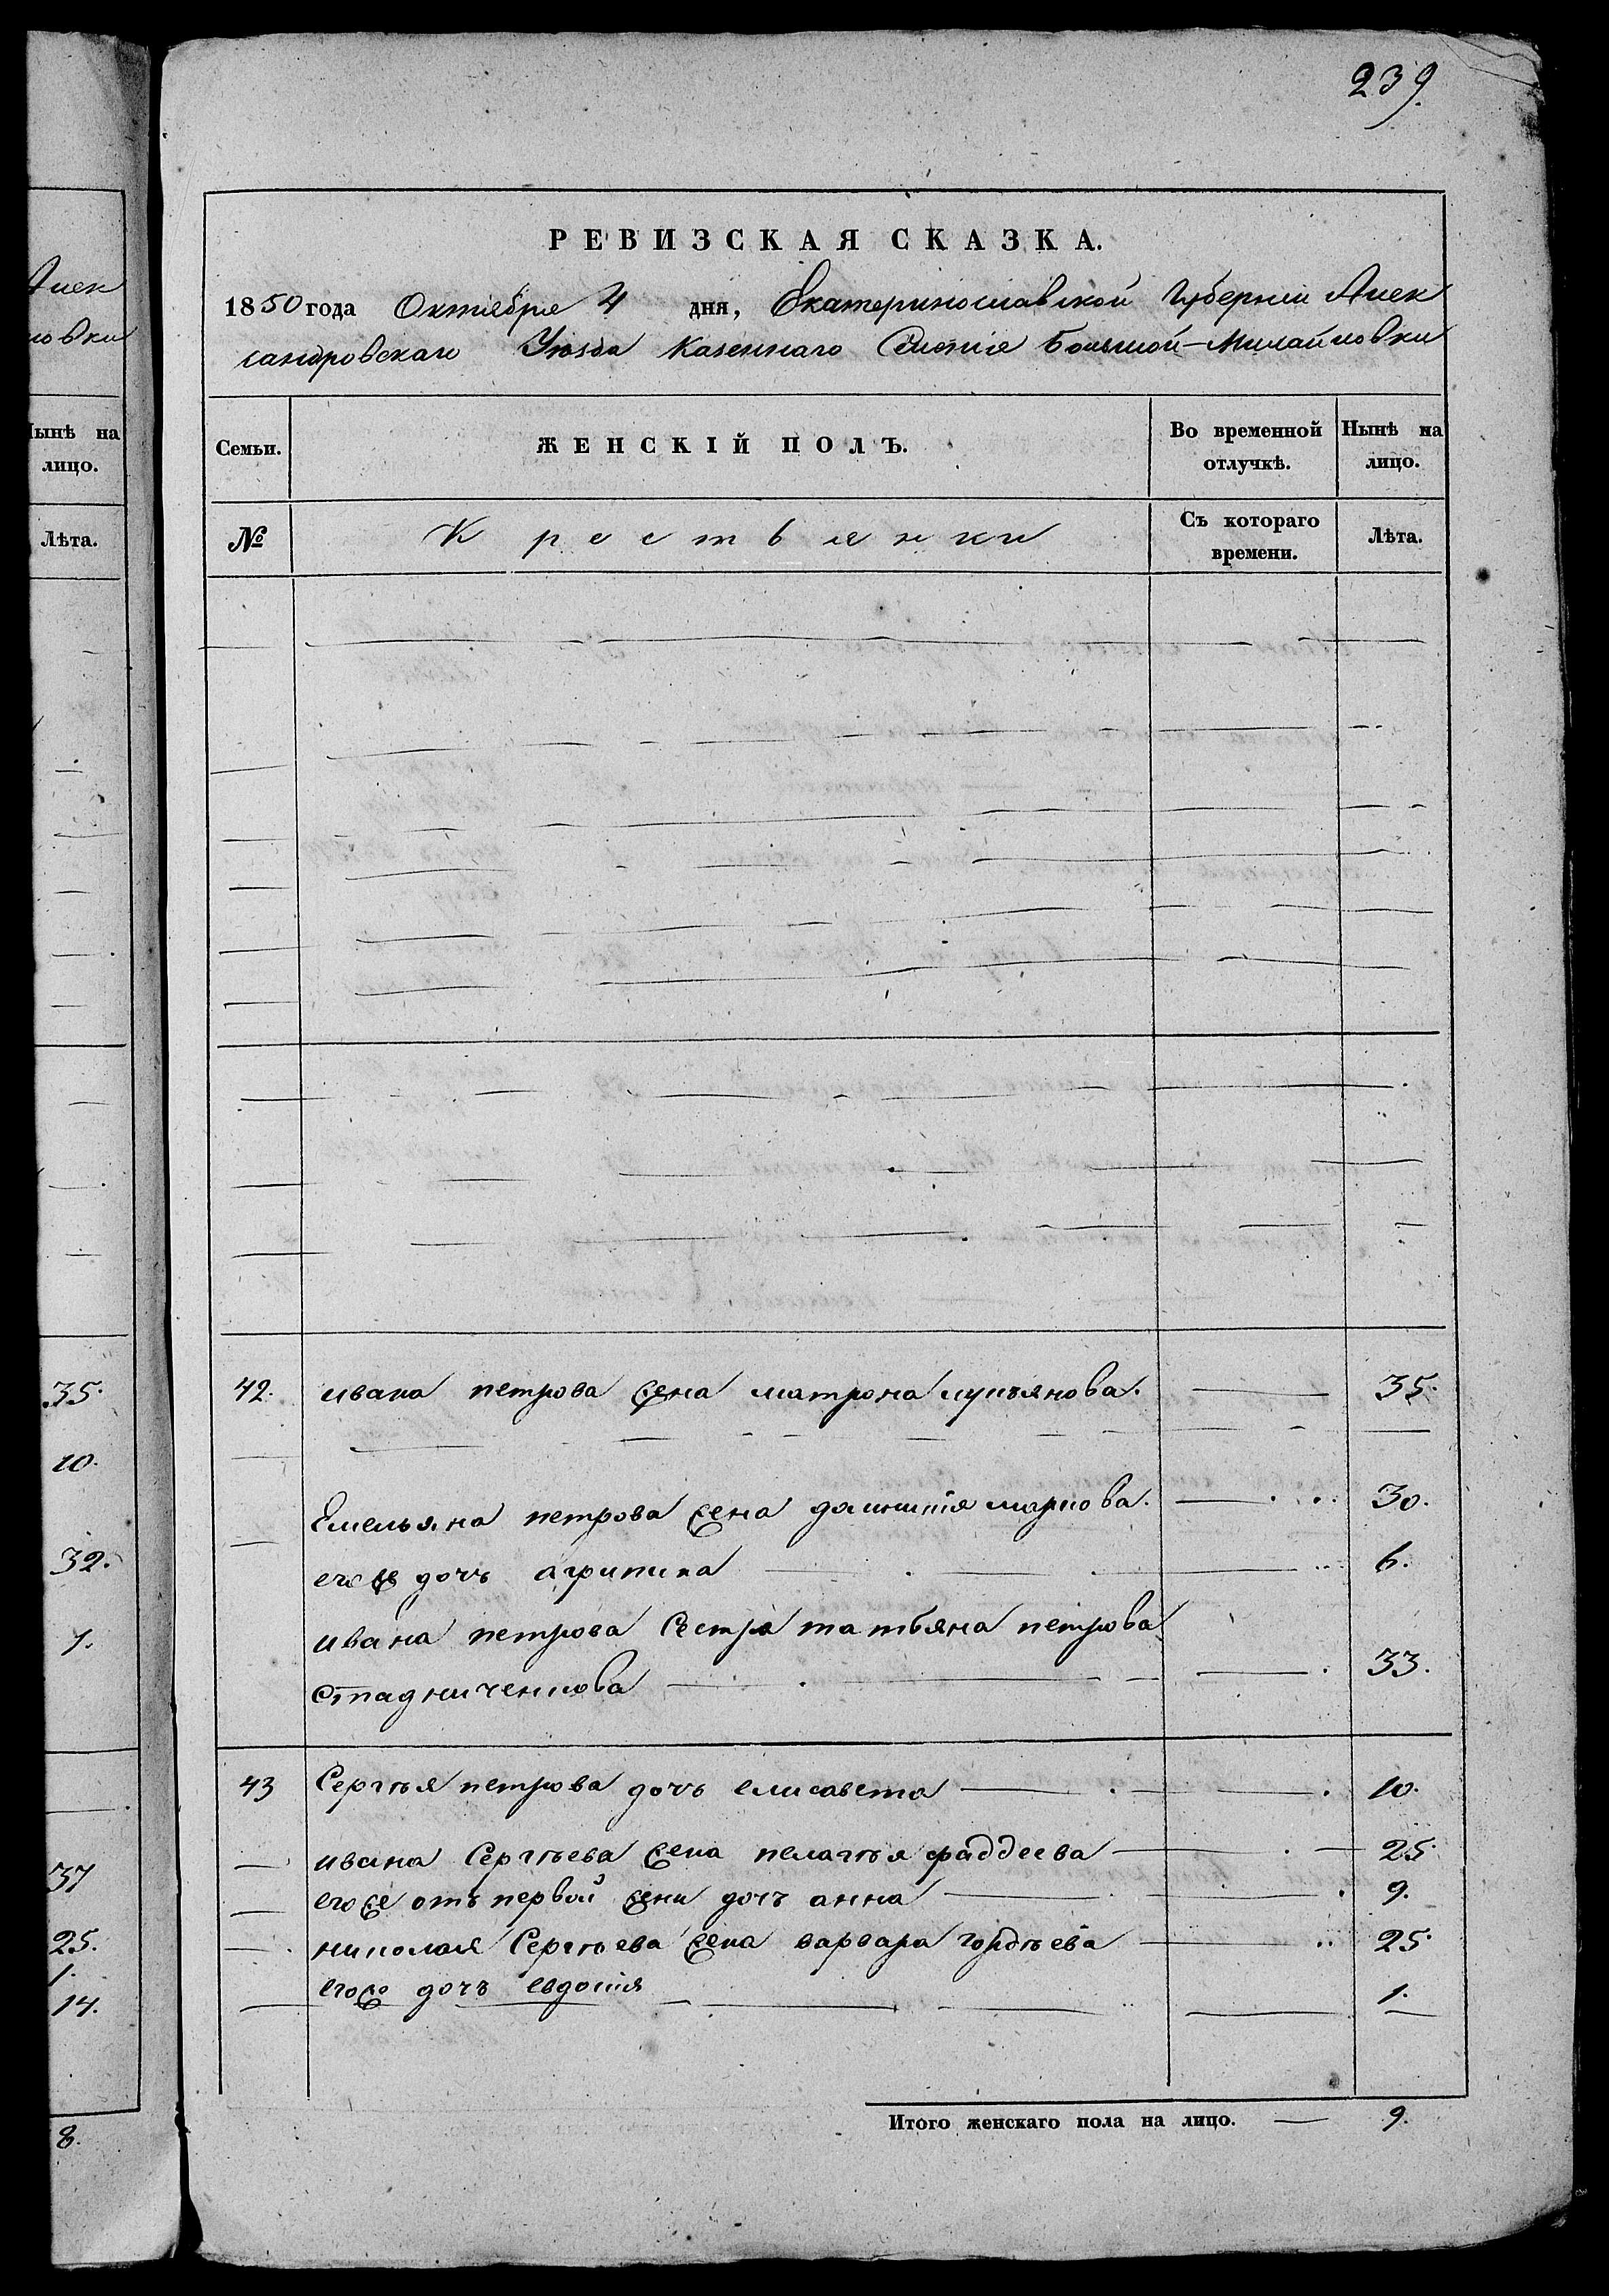 Алек
ловки
Нынѣ на
лицо.
Лѣта.
35.
10.
32.
1.
37
25.
1.
14.
8.
239.
РЕВИЗСКАЯ СКАЗКА.
1850 года Октября 4 дня, Екатеринославской Губерніи Алек
сандровскаго Уѣзда Казеннаго Селенія Большой-Михайловки
Семьи. ЖЕНСКІЙ ПОЛЪ. Во временной отлучкѣ. Нынѣ на лицо.
№ Крестьянки Съ котораго времени. Лѣта.
42. ивана петрова жена матрона лукьянова. 35.
Емельяна петрова жена домникія маркова. 30.
егоже дочь агрипина 6.
ивана петрова сестра татьяна петрова
стадниченкова 33.
43 Сергѣя петрова дочь елисавета 10.
ивана Сергѣева жена пелагѣя фаддеева 25.
егоже отъ первой жены дочь анна 9.
николая Сергѣева жена варвара гордѣева 25.
егоже дочь евдокія 1.
Итого женскаго пола на лицо. 9.